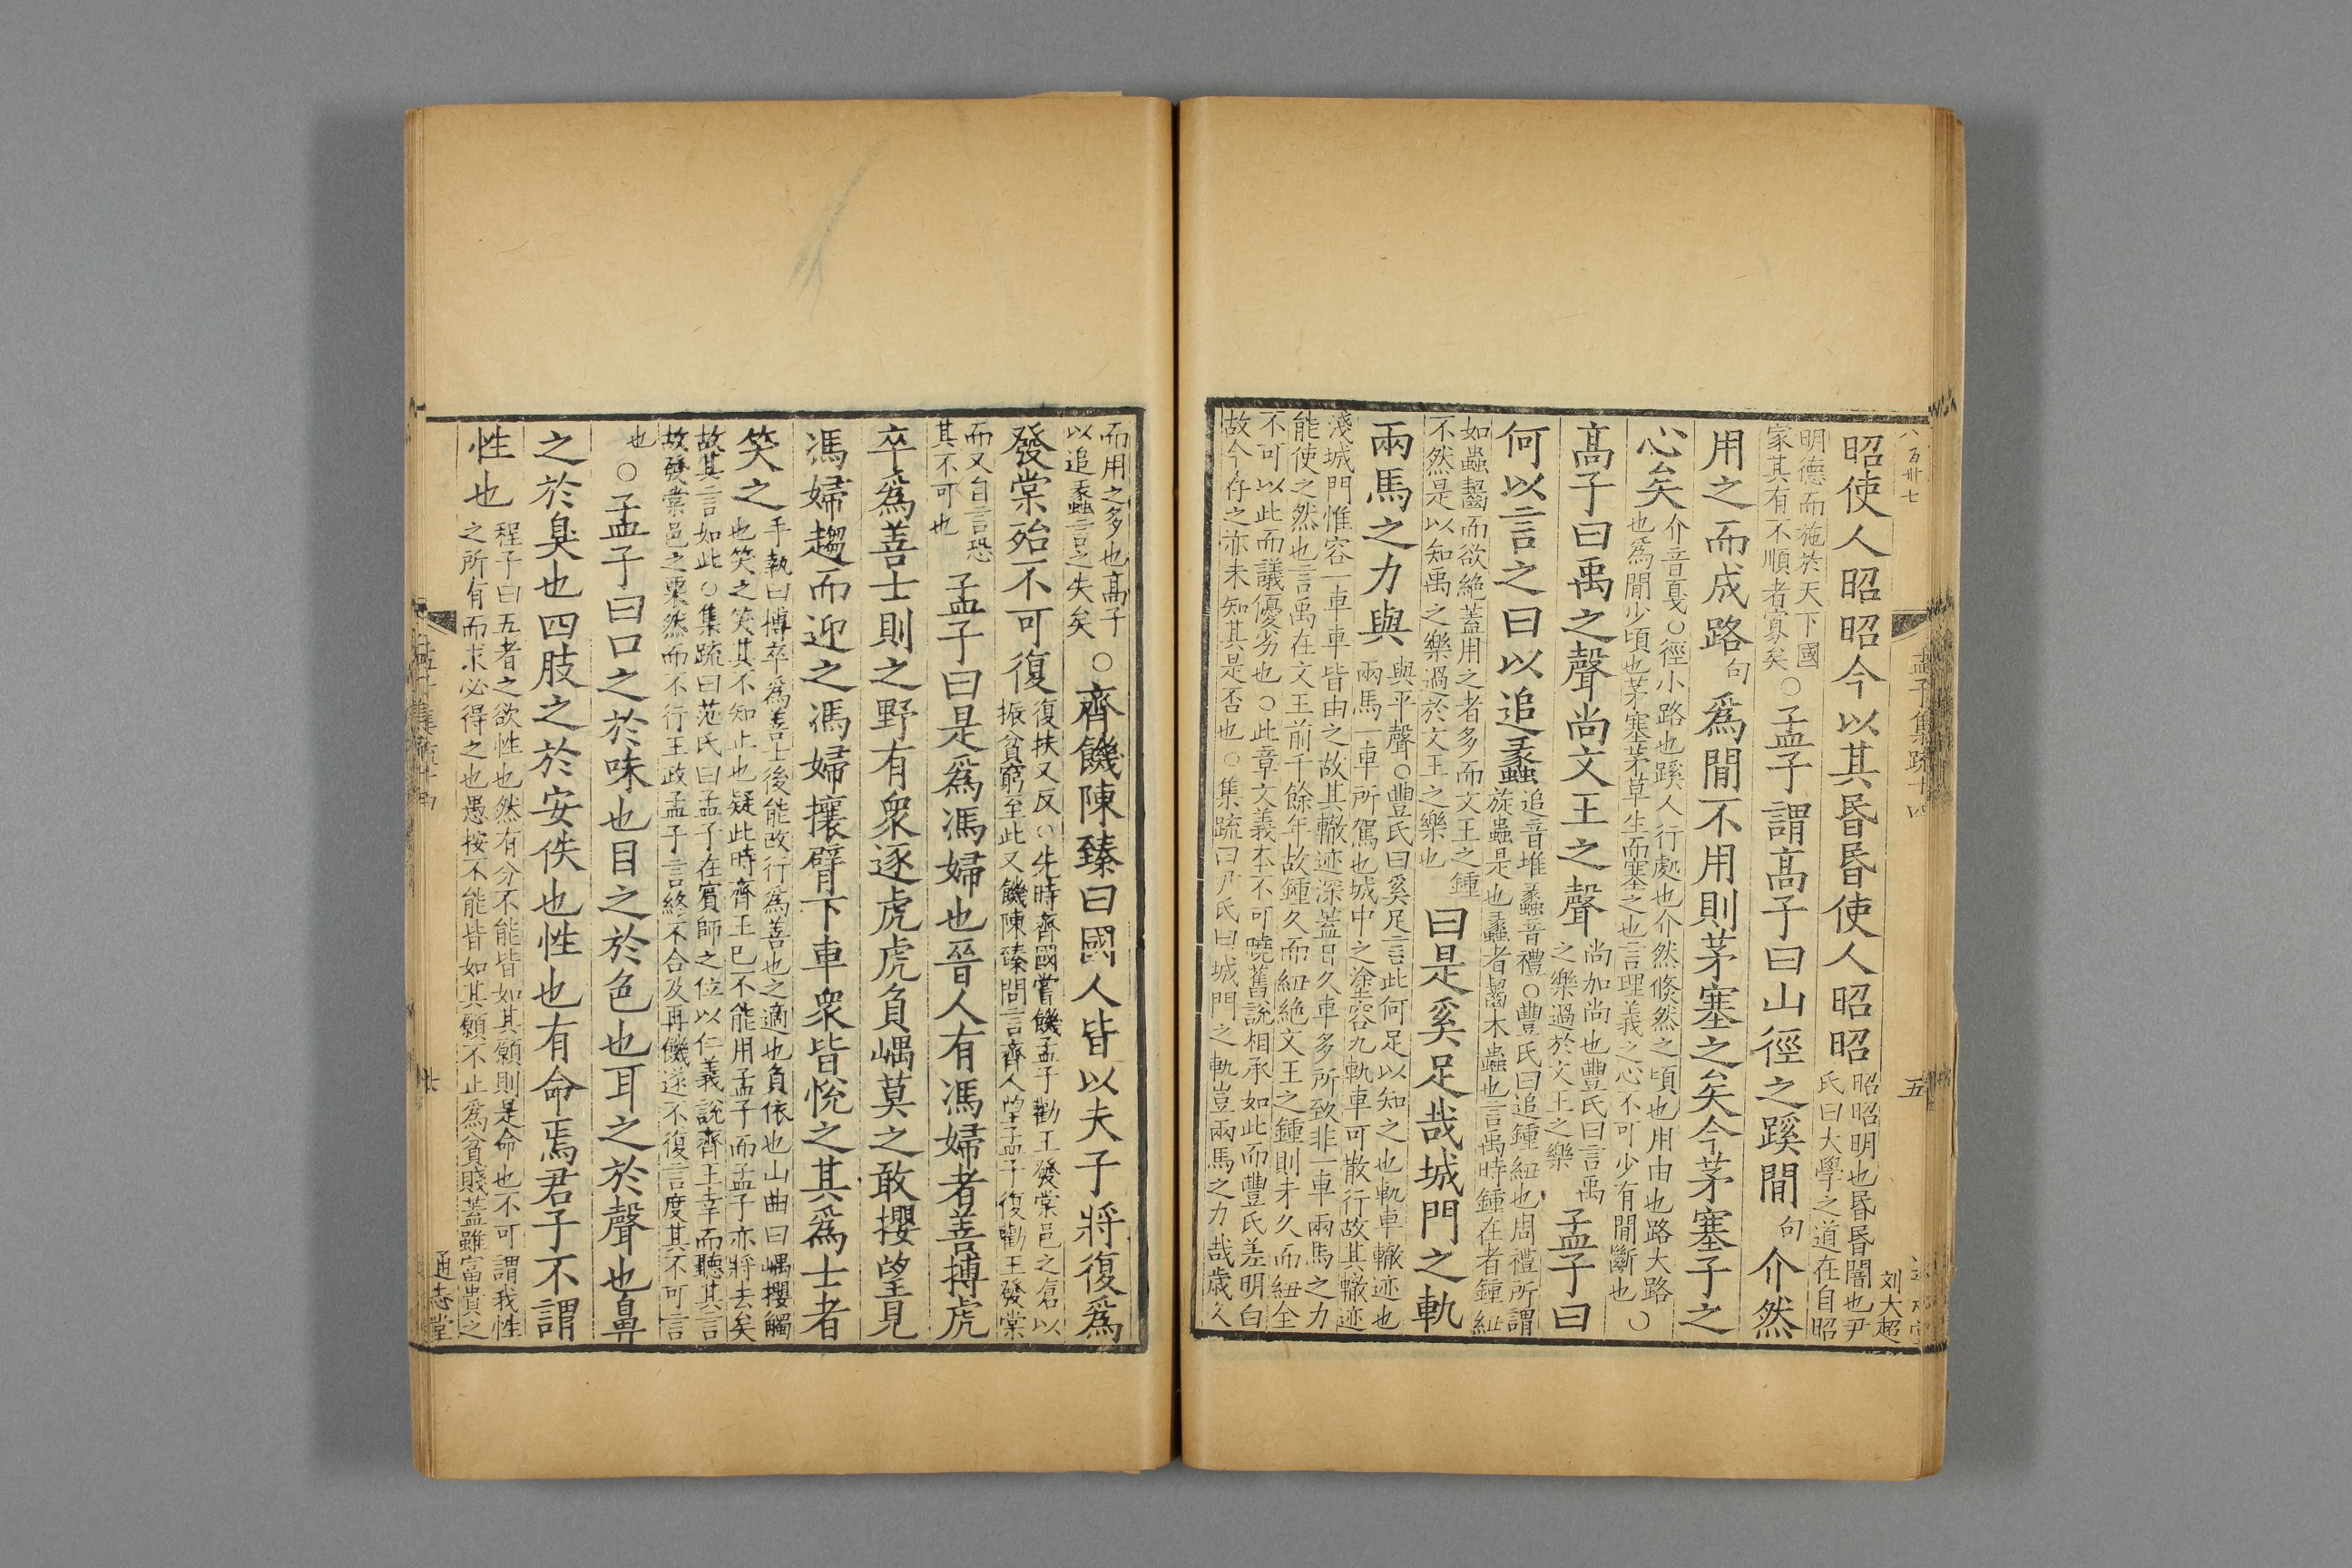 八百卅七
孟子集疏十四
五
刘大超
昭使人昭昭今以其昬昬使人昭昭昭昭明也昬昬闇也尹
氏曰大學之道在自昭
明德而施於天下國
家其有不順者寡矣○孟子謂高子曰山徑之蹊閒句介然
用之而成路句爲閒不用則茅塞之矣今茅塞子之
心矣介音戛○徑小路也蹊人行處也介然倐然之頃也用由也路大路
也爲閒少頃也茅塞茅草生而塞之也言理義之心不可少有閒斷也○
高子曰禹之聲尚文王之聲尚加尚也豐氏曰言禹
之樂過於文王之樂孟子曰
何以言之曰以追蠡追音堆蠡音禮○豐氏曰追鍾紐也周禮所謂
旋蟲是也蠡者齧木蟲也言禹時鍾在者鍾紐
如蟲齧而欲絶蓋用之者多而文王之鍾
不然是以知禹之樂過於文王之樂也曰是奚足哉城門之軌
兩馬之力與與平聲○豐氏曰奚足言此何足以知之也軌車轍迹也
兩馬一車所駕也城中之塗容九軌車可散行故其轍迹
淺城門惟容一車車皆由之故其轍迹深蓋日久車多所致非一車兩馬之力
能使之然也言禹在文王前千餘年故鍾久而紐絶文王之鍾則未久而紐全
不可以此而議優劣也○此章文義本不可曉舊說相承如此而豐氏差明白
故今存之亦未知其是否也○集疏曰尹氏曰城門之軌豈兩馬之力哉歲久
而用之多也高子
以追蠡言之失矣○齊饑陳臻曰國人皆以夫子將復爲
發棠殆不可復復扶又反○先時齊國嘗饑孟子勸王發棠邑之倉以
振貧窮至此又饑陳臻問言齊人望孟子復勸王發棠
而又自言恐
其不可也孟子曰是爲馮婦也晉人有馮婦者善搏虎
卒爲善士則之野有衆逐虎虎負嵎莫之敢攖望見
馮婦趨而迎之馮婦攘臂下車衆皆悅之其爲士者
笑之手執曰搏卒爲善士後能改行爲善也之適也負依也山曲曰嵎攖觸
也笑之笑其不知止也疑此時齊王已不能用孟子而孟子亦將去矣
故其言如此○集疏曰范氏曰孟子在賓師之位以仁義說齊王幸而聽其言
故發棠邑之粟然而不行王政孟子言終不合及再饑遂不復言度其不可言
也○孟子曰口之於味也目之於色也耳之於聲也鼻
之於臭也四肢之於安佚也性也有命焉君子不謂
性也程子曰五者之欲性也然有分不能皆如其願則是命也不可謂我性
之所有而求必得之也愚按不能皆如其願不止爲貧賤蓋雖富貴之
通志堂